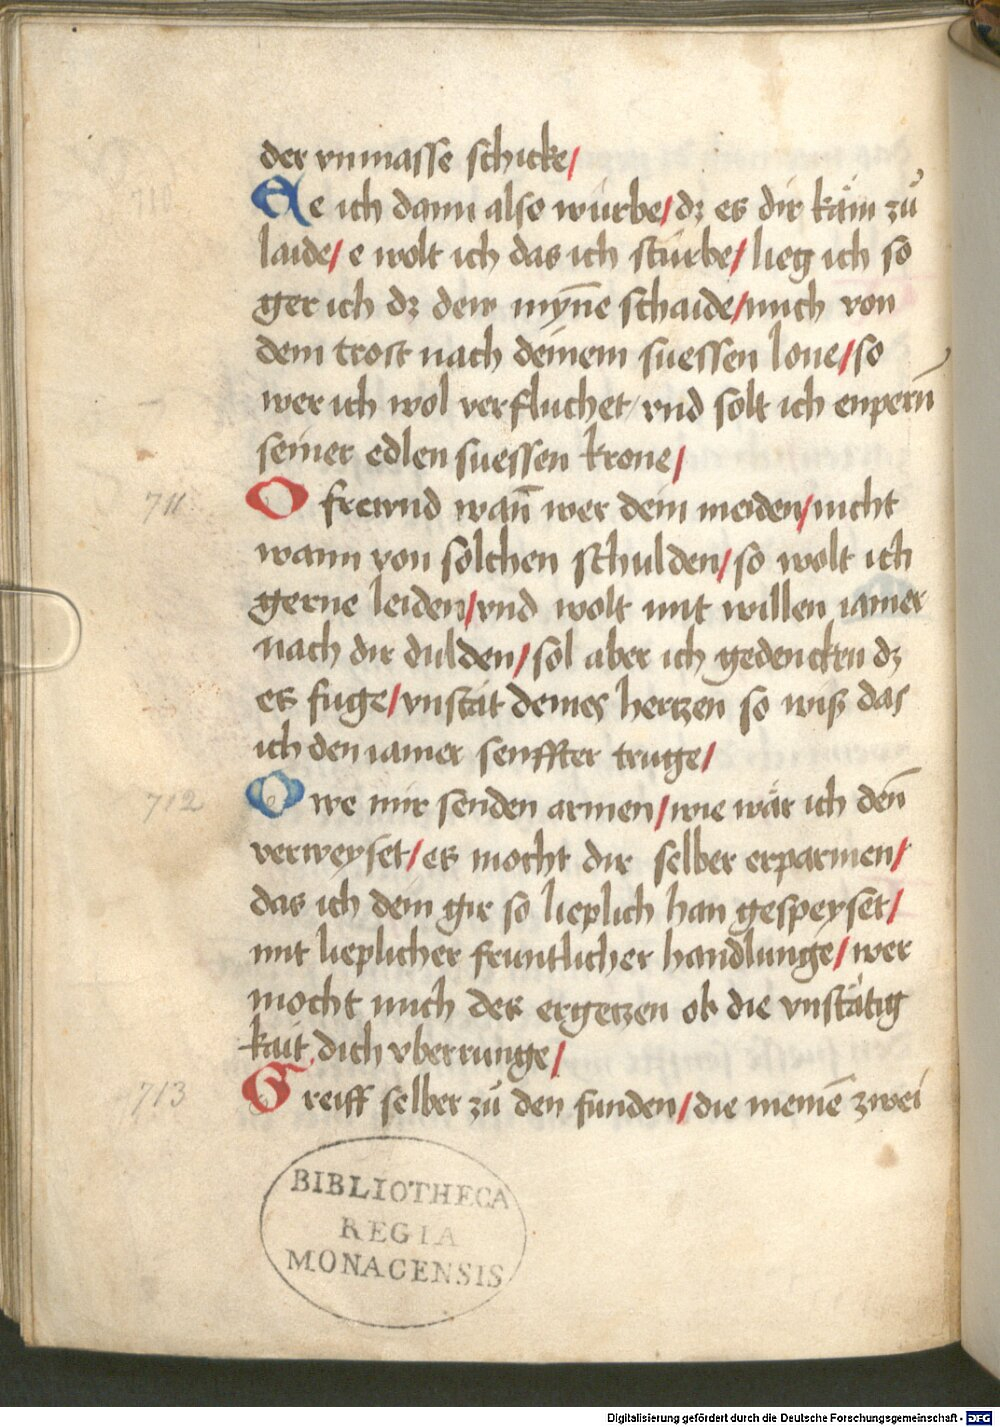 der vnmasse schicke/
Ee ich dann also würbe/ dz es dir käm zů
laide/ e wolt ich das ich stürbe/ lieg ich so
ger ich dz dein mȳne schaide/ mich von
dem trost nach deinem suessen lone/ so
wer ich wol verfluchet/ vnd solt ich enpern̄
seiner edlen suessen krone/
711
O frewnd wan̄ wer dein meiden/ nicht
wann von solchen schulden/ so wolt ich
gerne leiden/ vnd wolt mit willen iamer
nach dir dulden/ sol aber ich gedencken dz
es fuge/ vnstät deines hertzen so wiß das
ich den iamer senffter truge/
712
O we mir senden armen/ wie wär ich den̄
verweyset/ es mocht dir selber erparmen/
das ich dein gir so lieplich han gespeyset/
mit lieplicher fruntlicher handlunge/ wer
mocht mich des ergetzen ob die vnstätig
kait dich vberrunge/
713
Greiff selber zů den funden/ die meinē zwei
BIBLIOTHECA
REGIA
MONACENSIS
Digitalisierung gefördert durch die Deutsche Forschungsgemeinschaft - DFG